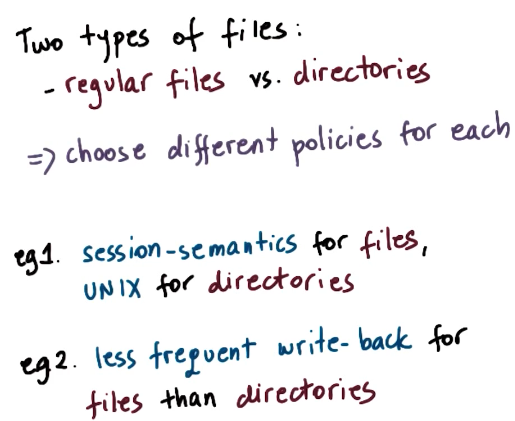 Two types of files:
- regular files vs. directories
=> choose different policies for each
eg1. session-semantics for files,
UNIX for directories
eg2. less frequent write-back for
files than directories